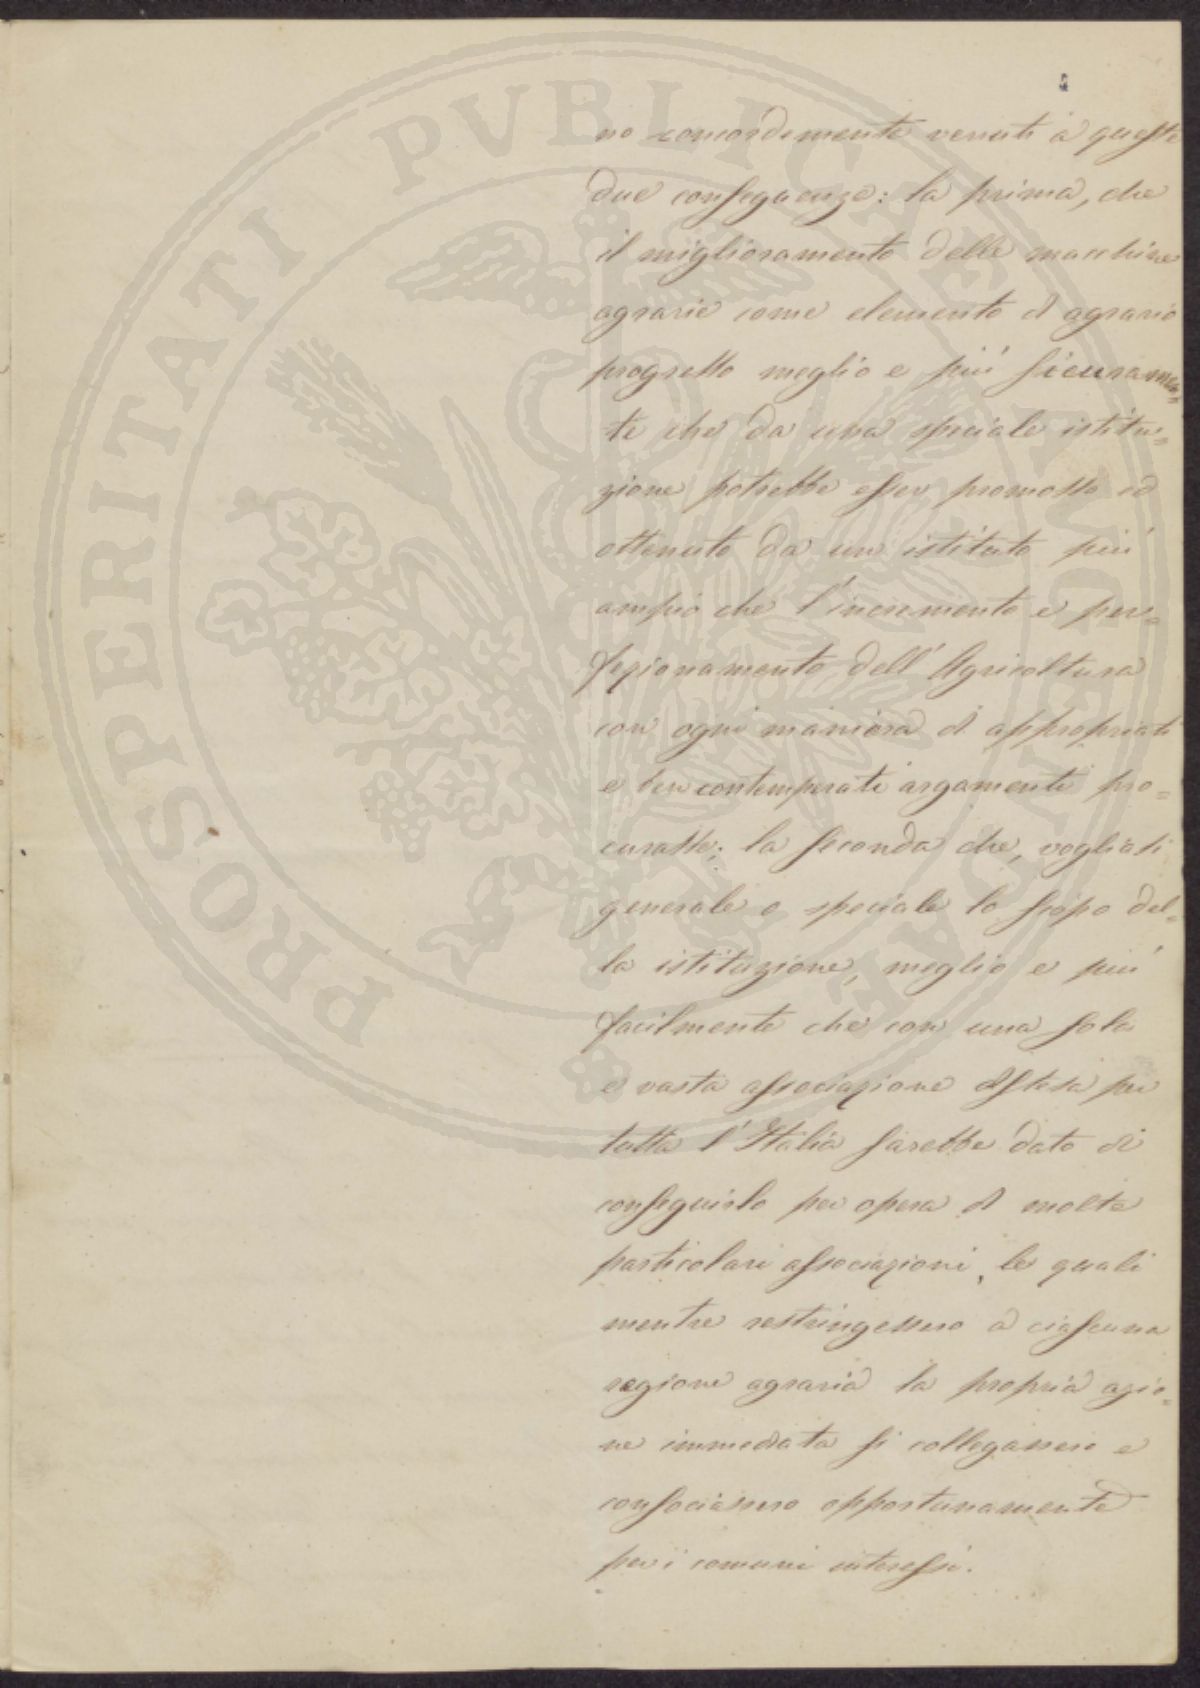 PROSPERITATI PVBLICAE AVGENDAE
no concordemente venuti a queste
due conseguenze: la prima, che
il miglioramento delle macchine
agrarie come elemento di agrario
progresso meglio e più sicuramen=
te che da una speciale istitu=
zione potrebbe esser promosso ed
ottenuto da un istituto più
ampio che l'incremento e per=
fezionamento dell'Agricoltura
con ogni maniera di appropriati
e ben contemperati argomenti pro=
curasse; la seconda che, vogliasi
generale o speciale lo scopo del=
la istituzione, meglio e più
facilmente che con una sola
e vasta associazione distesa per
tutta l'Italia sarebbe dato di
conseguirlo per opera di molte
particolari associazioni, le quali
mentre restringessero a ciascuna
regione agraria la propria azio=
ne immediata si collegassero e
consociassero opportunamente
per i comuni interessi.